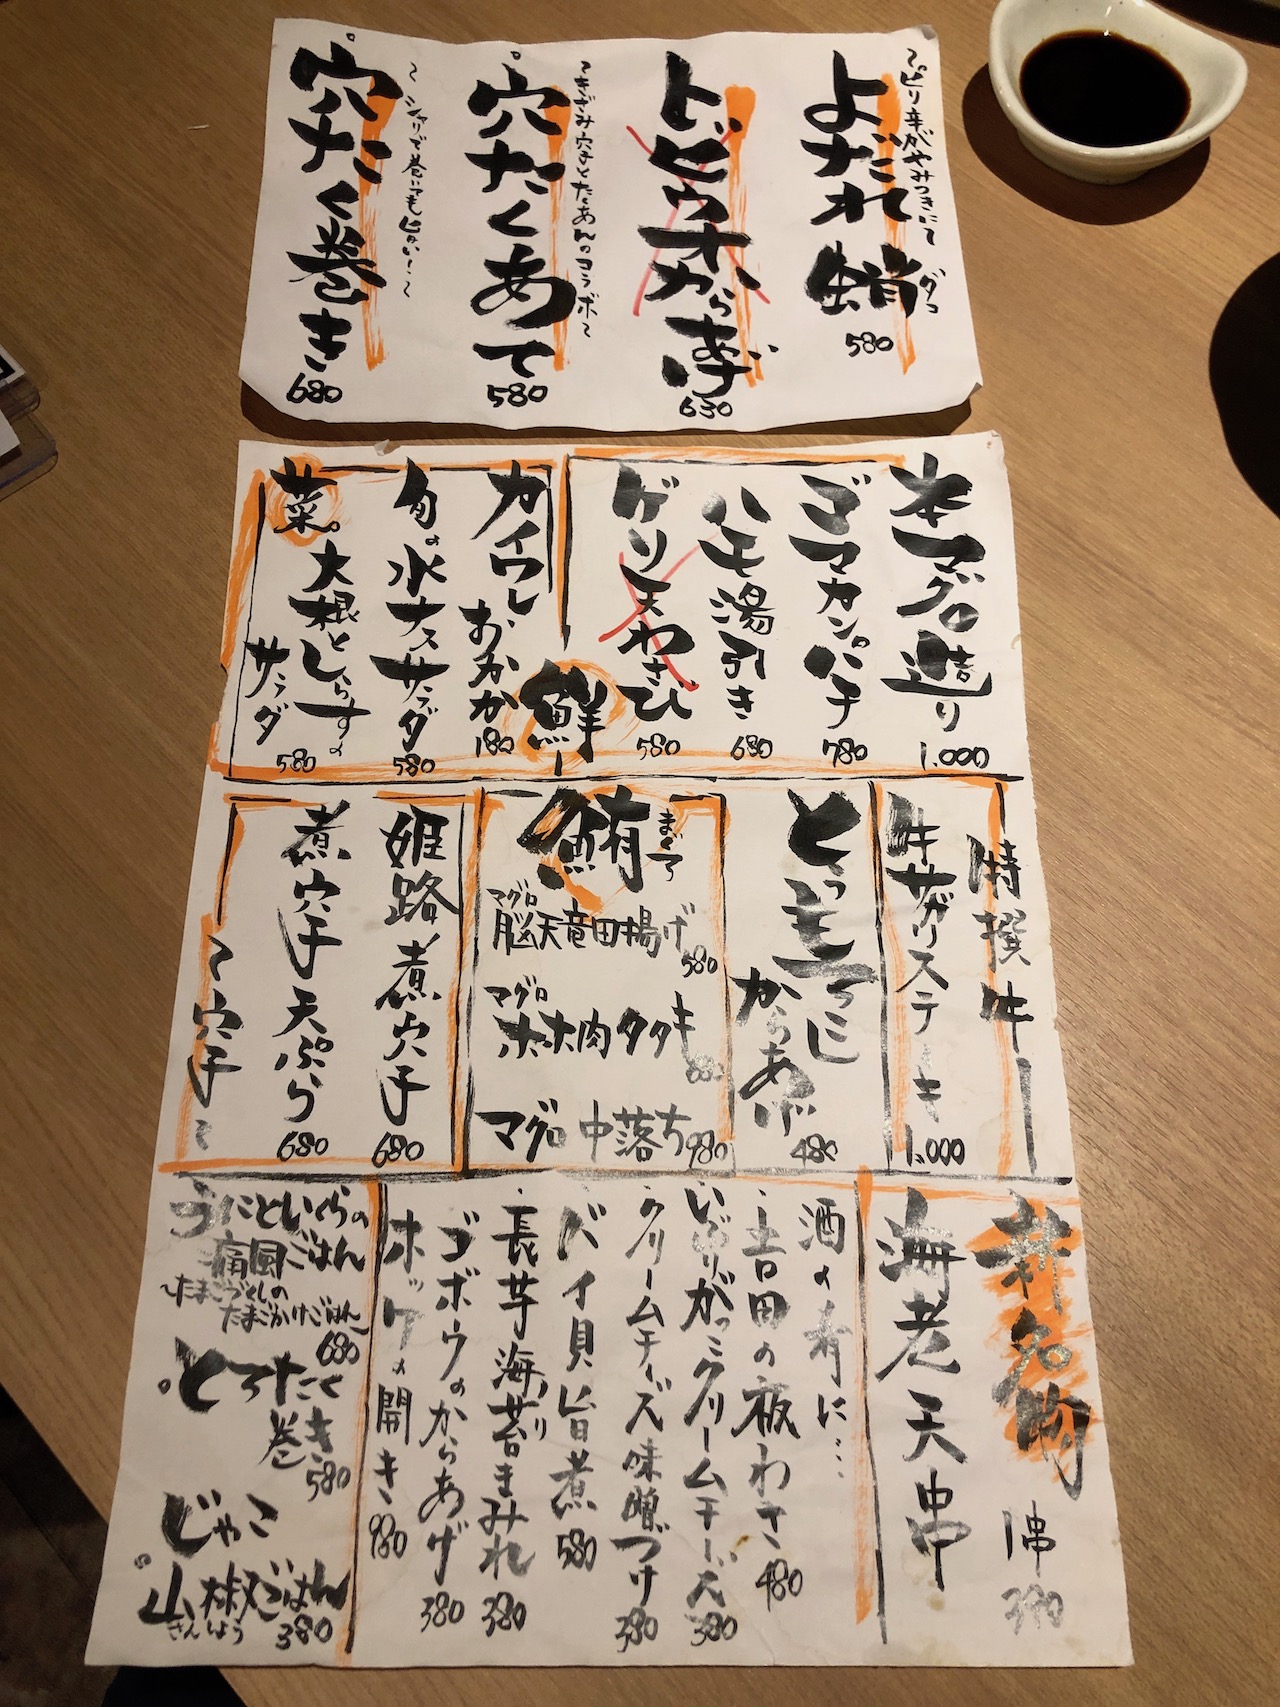 〜ピリ辛がやみつきにて
よだれ蛸
ダコ
580
トビウオからあげ
630
〜きざみ穴子とたくあんのコラボ〜
穴たくあて
580
〜シャリで巻いても旨い!〜
穴たく巻き
680
本マグロ造り
1.000
ゴマカンパチ
780
ハモ湯引き
680
ゲソ天わさび
580
鮮
カイワレ
おかか
180
旬の水ナスサラダ
580
菜
大根としらすの
サラダ
580
特撰牛
牛サガリステーキ
1.000
からあげ
480
鮪
まぐろ
マグロ
脳天竜田揚げ
580
マグロ
ホホ肉タタキ
マグロ中落ち
980
姫路煮穴子
680
煮穴子天ぷら
680
〜穴子〜
新名物
海老天串
1串
酒の肴に…
・吉田の板わさ
480
いぶりがっこクリームチーズ
380
クリームチーズ味噌づけ
380
バイ貝旨煮
580
・長芋海苔まみれ
のり
380
ゴボウのからあげ
380
ホッケの開き
980
うにといくらの
痛風ごはん
〜たまごづくしの
たまごかけごはん〜
680
とろたく
巻き
580
じゃこ
山椒ごはん
さんしょう
380